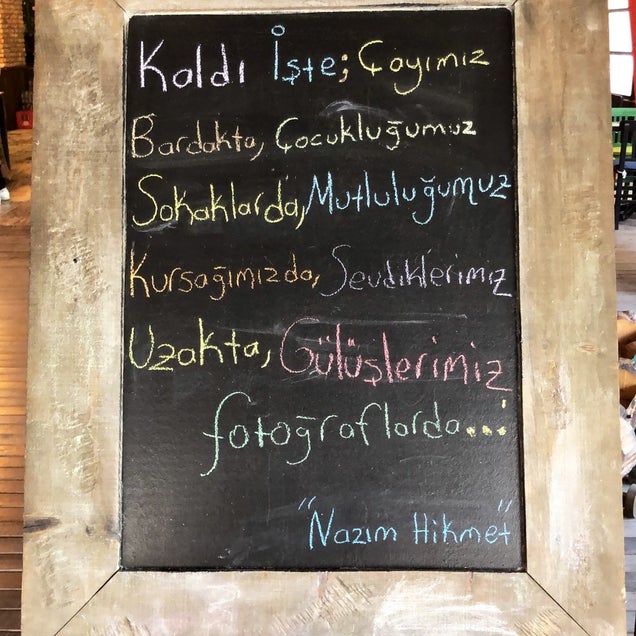 Kaldı İşte; Çayımız
Bardakta, Çocukluğumuz
Sokaklarda, Mutluluğumuz
Kursağımızda, Sevdiklerimiz
Uzakta, Gülüşlerimiz
fotoğraflarda...!
"Nazım Hikmet"